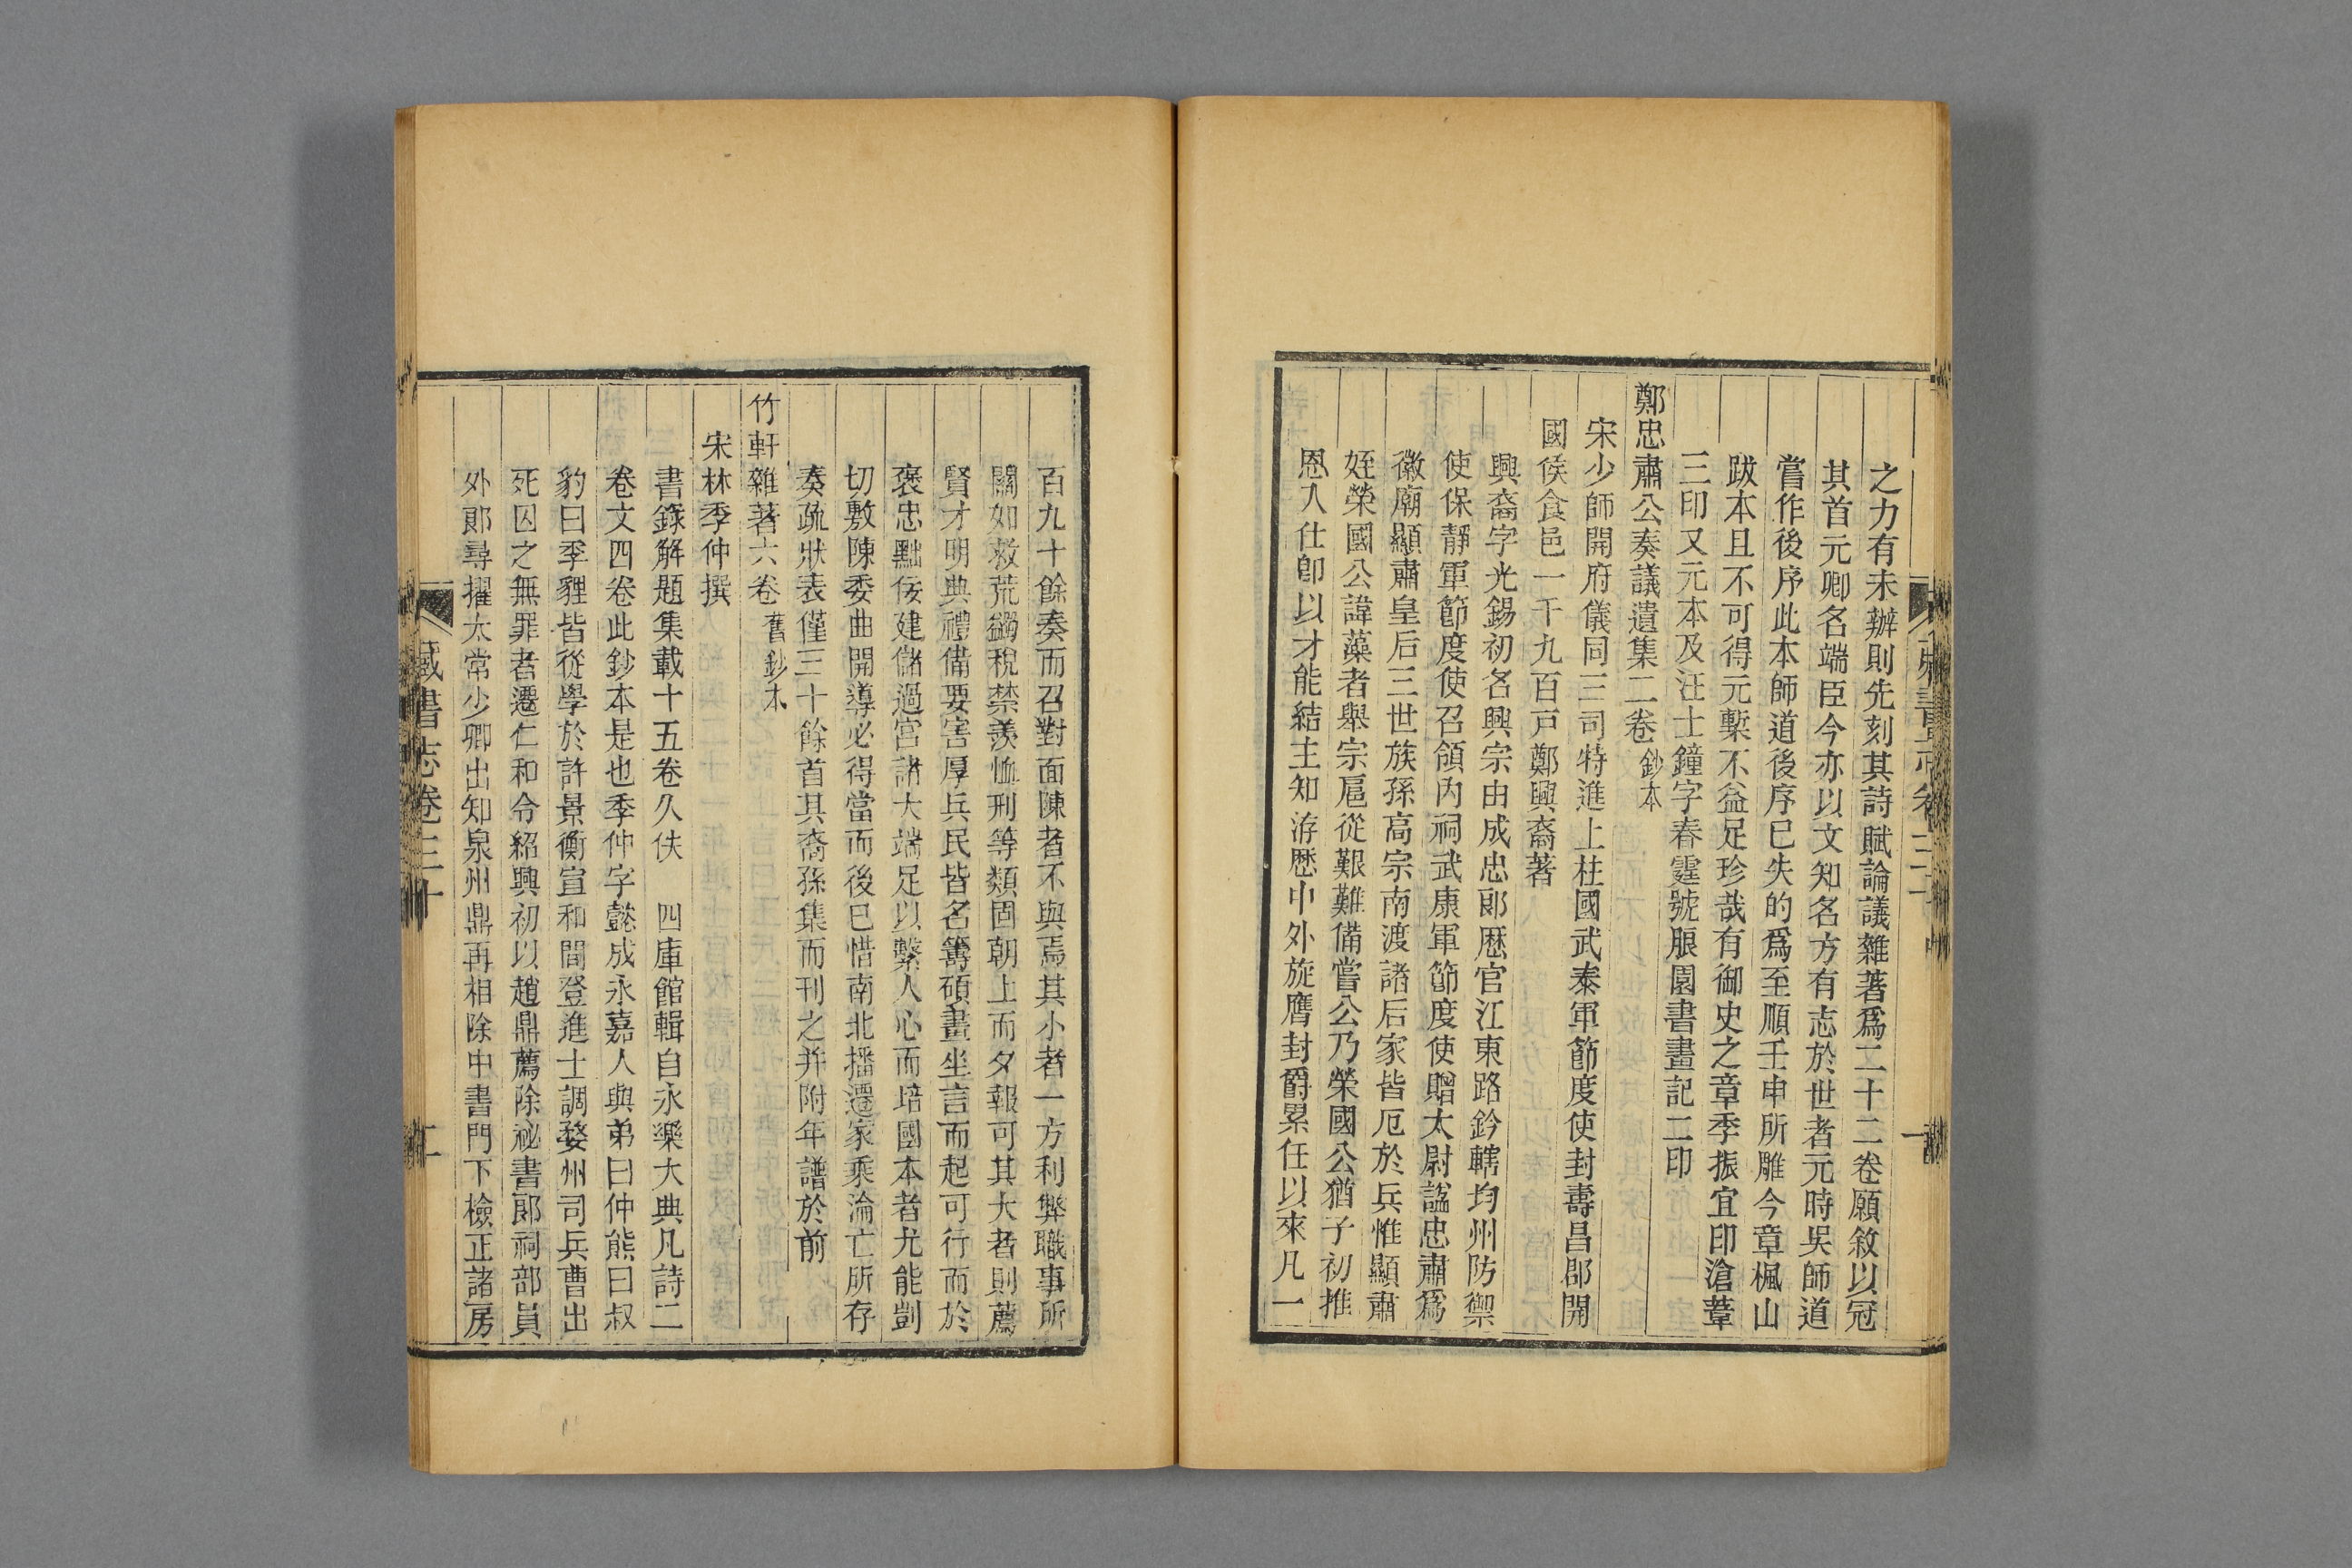 之力有未辦則先刻其詩賦論議雜著爲二十二卷願敘以冠
其首元卿名端臣今亦以文知名方有志於世者元時吳師道
嘗作後序此本師道後序已失的爲至順壬申所雕今章楓山
跋本且不可得元槧不益足珍哉有御史之章季振宜印滄葦
三印又元本及汪士鐘字春霆號朖園書畫記二印
鄭忠肅公奏議遺集二卷 鈔本
宋少師開府儀同三司特進上柱國武泰軍節度使封壽昌郡開
國侯食邑一千九百戸鄭興裔著
興裔字光錫初名興宗由成忠郎厯官江東路鈐轄均州防禦
使保靜軍節度使召領内祠武康軍節度使贈太尉諡忠肅爲
徽廟顯肅皇后三世族孫高宗南渡諸后家皆厄於兵惟顯肅
姪榮國公諱藻者舉宗扈從艱難備嘗公乃榮國公猶子初推
恩入仕卽以才能結主知洊厯中外旋膺封爵累任以來凡一
百九十餘奏而召對面陳者不與焉其小者一方利弊職事所
關如救荒蠲稅禁羡恤刑等類固朝上而夕報可其大者則薦
賢才明典禮備要害厚兵民皆名籌碩畫坐言而起可行而於
褒忠黜佞建儲過宮諸大端足以繫人心而培國本者尤能剴
切敷陳委曲開導必得當而後已惜南北播遷家乘淪亡所存
奏疏狀表僅三十餘首其裔孫集而刊之幷附年譜於前
竹軒雜著六卷 舊鈔本
宋林季仲撰
書錄解題集載十五卷久佚 四庫館輯自永樂大典凡詩二
卷文四卷此鈔本是也季仲字懿成永嘉人與弟曰仲熊曰叔
豹曰季貍皆從學於許景衡宣和間登進士調婺州司兵曹出
死囚之無罪者遷仁和令紹興初以趙鼎薦除祕書郎祠部員
外郎尋擢太常少卿出知泉州鼎再相除中書門下檢正諸房
藏書志卷三十